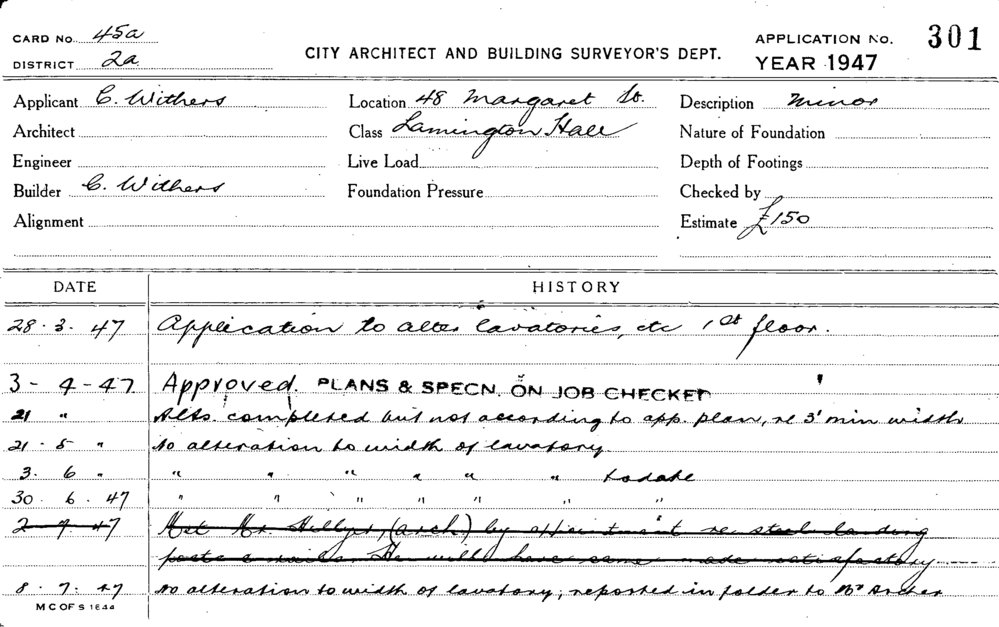 CARD No. 45a
DISTRICT 2a
CITY ARCHITECT AND BUILDING SURVEYOR'S DEPT.
APPLICATION No. 301
YEAR 1947
Applicant C. Withers
Location 48 Margaret St.
Description Minor
Architect
Class Lamington Hall
Nature of Foundation
Engineer
Live Load
Depth of Footings
Builder C. Withers
Foundation Pressure
Checked by
Alignment
Estimate £150
DATE HISTORY
28.3.47 Application to alter lavatories, etc 1st floor.
3-4-47 Approved. PLANS & SPECN. ON JOB CHECKED
21 " Alts. completed but not according to app. plan, re 3' min width
21.5 " No alteration to width of lavatory.
3.6 " " " " " " " todate
30.6.47 " " " " " " "
2-7-47 Met Mr. Hillyer, (arch) by appointment re steel landing
posts & rails. He will have same made satisfactory
8.7.47 No alteration to width of lavatory; reported in folder to Mr Archer
M C OF S 1644